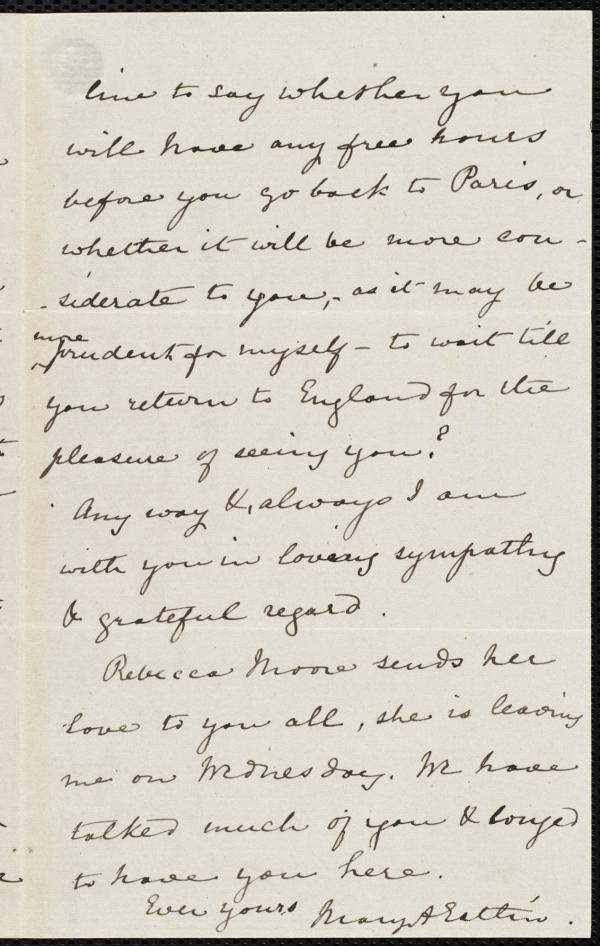 line to say whether you
will have any free hours
before you go back to Paris, or
whether it will be more con-
-siderate to you, - as it may be
more
prudent for myself - to wait till
you return to England for the
pleasure of seeing you?
Any way &, always I am
with you in loving sympathy
& grateful regard.
Rebecca Moore sends her
love to you all, she is leaving
me on Wednesday. We have
talked much of you & longed
to have you here.
Ever yours Mary A Estlin.